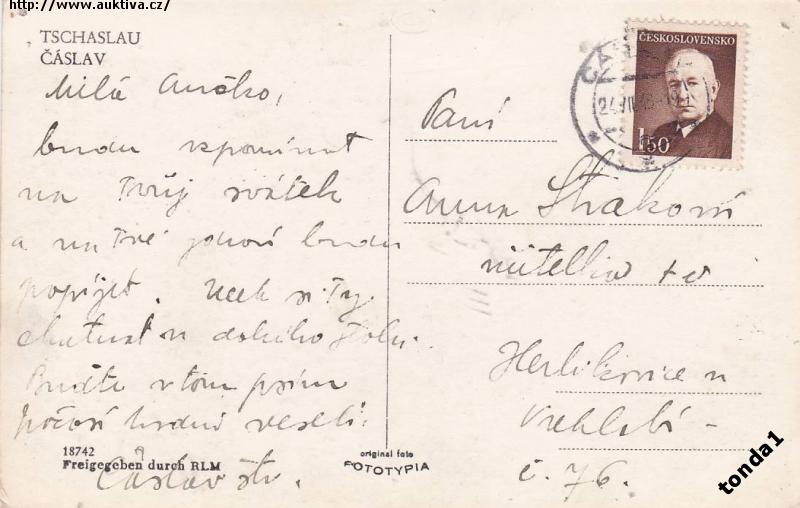 http://www.auktiva.cz/
TSCHASLAU
ČÁSLAV
Milá Aničko,
budu vzpomínat
na Tvůj svátek
a na Tvé budu
popíjet. si Ty
chutnat u dobrého stolu.
Buďte v tom
počasí hodně veselí.
Čáslav
18742
Freigegeben durch RLM
original foto
FOTOTYPIA
ČESKOSLOVENSKO
1.50
Paní
Anna
učitelka
Herlíkovice u
Vrchlabí -
č. 76.
tonda1